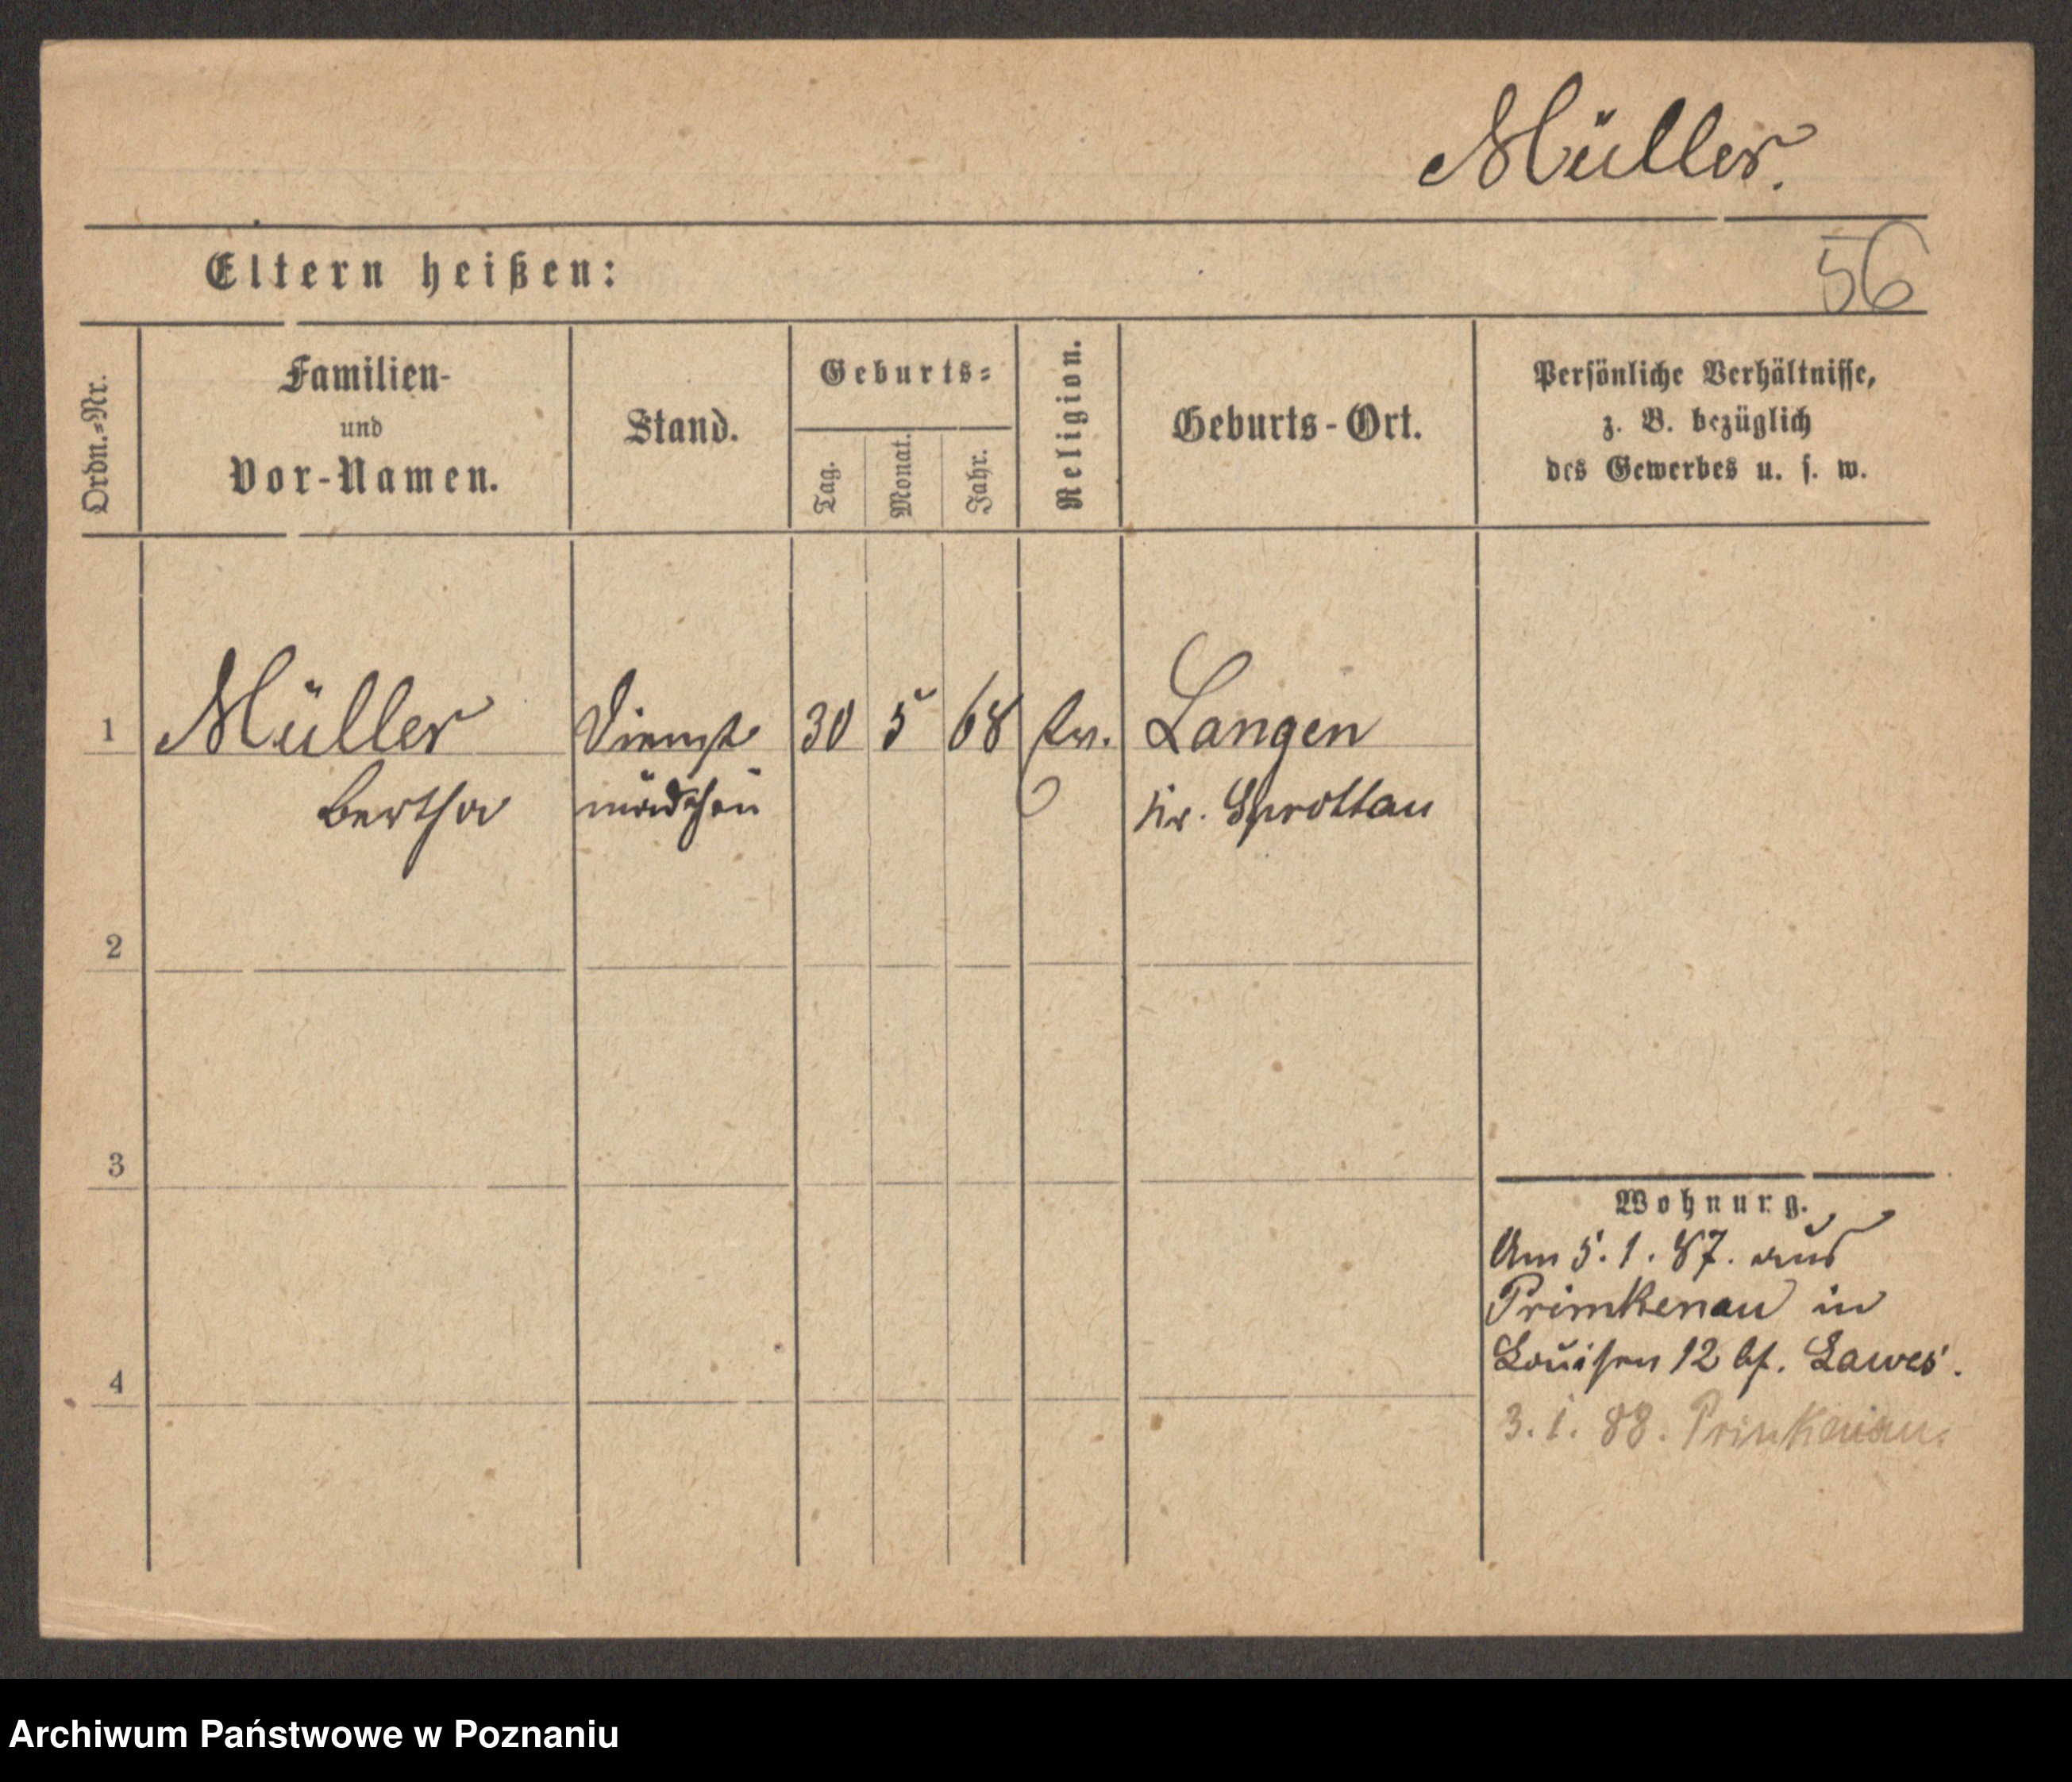 Müller.
Eltern heißen:
56
Ordn.-Nr.
Familien-
und
Vor-Namen.
Stand.
Geburts-
Tag.
Monat.
Jahr.
Religion.
Geburts-Ort.
Persönliche Verhältnisse,
z. B. bezüglich
des Gewerbes u. s. w.
1 Müller Dienst 30 5 68 Langen
Bertha mädchen Kr. Sprottau
2
3
4
Wohnung.
Am 5. 1. 87. aus
Primkenau in
Louisen 12 bf. Lawes.
3. 1. 88. Primkenau.
Archiwum Państwowe w Poznaniu